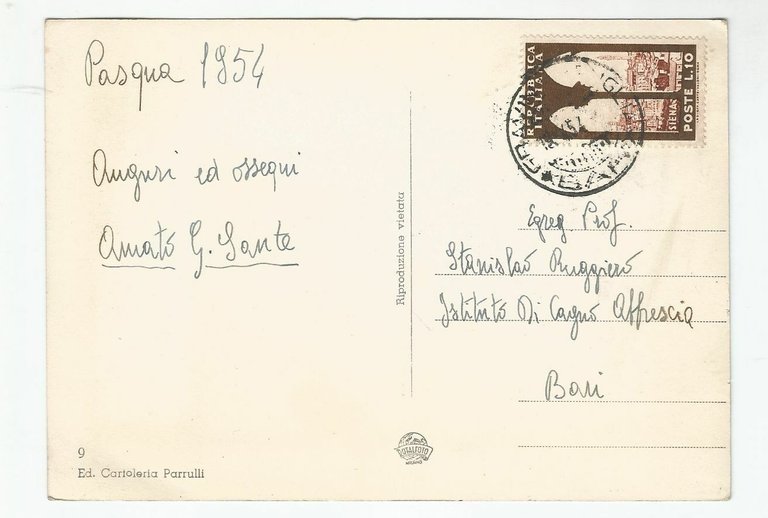 Pasqua 1954
Auguri ed ossequi
Amato G. Sante
9
Ed. Cartoleria Parrulli
Riproduzione vietata
REPUBBLICA
ITALIANA
SIENA
POSTE L.10
BARI
Egreg Prof.
Stanislao Ruggiero
Istituto Di Cagno Abbrescia
Bari
MILANO